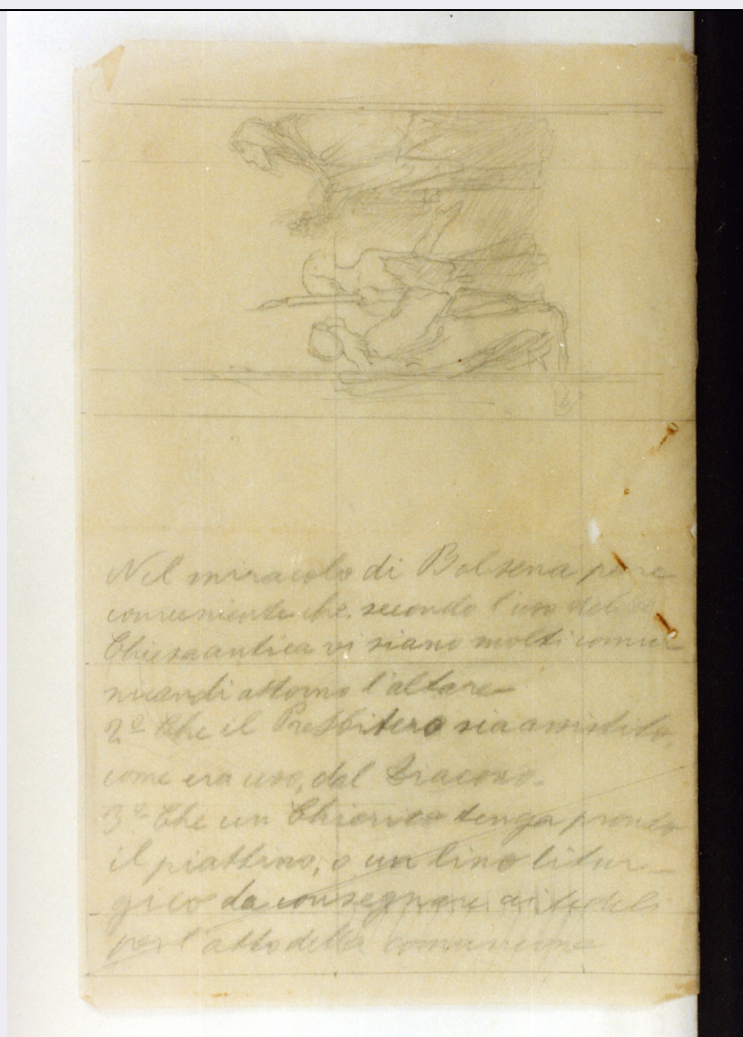 Nel miracolo di Bolsena pare
conveniente che, secondo l'uso della
Chiesa antica vi siano molti comu
nicandi attorno l'altare
2º Che il Presbitero sia assistito,
come era uso, dal Diacono.
3º Che un Chierico tenga pronto
il piattino, o un lino litur-
gico da consegnare ai fedeli
per l'atto della comunione